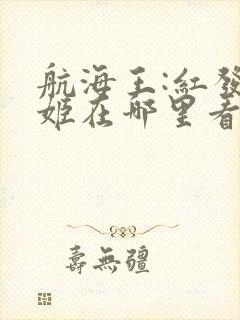 航海王:红發
姬在哪里看
壽無疆